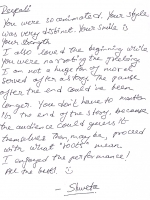 Deepali
You were so animated. Your style
was very distinct. Your smile :)
Your strength
I also loved the beginning while
You were narrating the greeting
I am not a huge fan of morals
served after a story. The pause
after the end could've been
longer. You don't have to master
the end of the story, because
the audience could guess it
themselves. Then maybe, proceed
with what "roots" mean
I enjoyed the performance!
All the best! :)
- Shweta